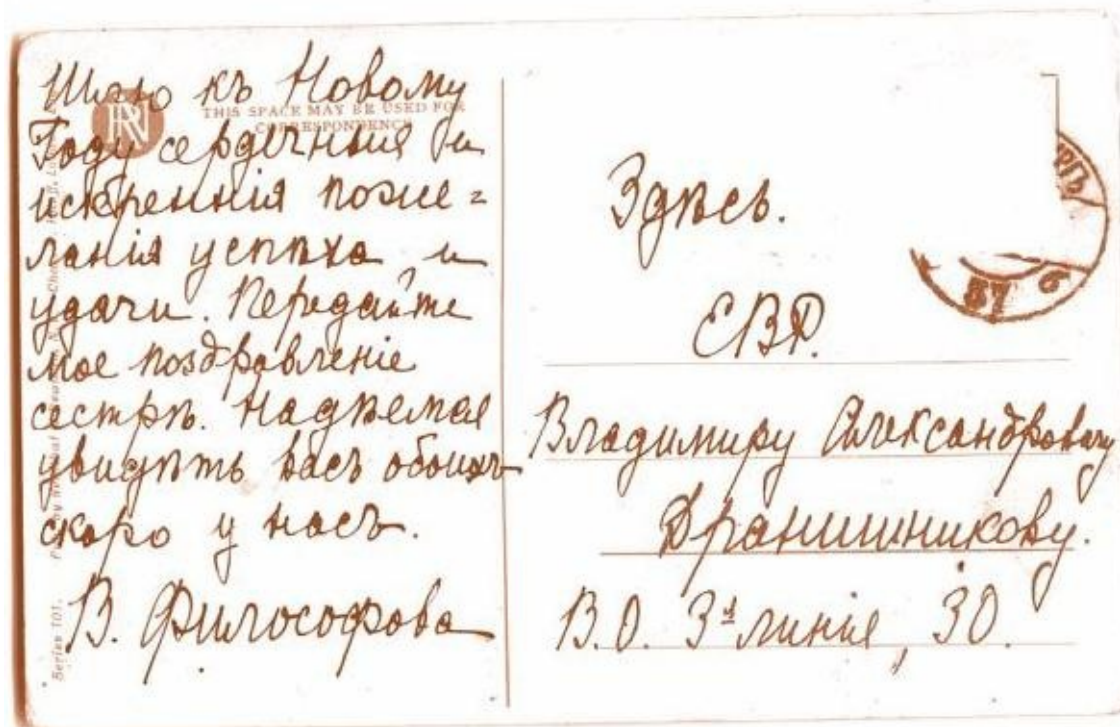 Шлю къ Новому
Году сердечныя и
искреннія поже=
ланія успѣха и
удачи. Передайте
мое поздравленіе
сестрѣ. Надѣемся
увидѣть васъ обоихъ
скоро у насъ.
В. Философова
THIS SPACE MAY BE USED FOR
CORRESPONDENCE
Series 101.
Здѣсь.
ЕВР.
Владимиру Александровичу
Дранишникову.
В.О. 3я линія, 30.
37 6